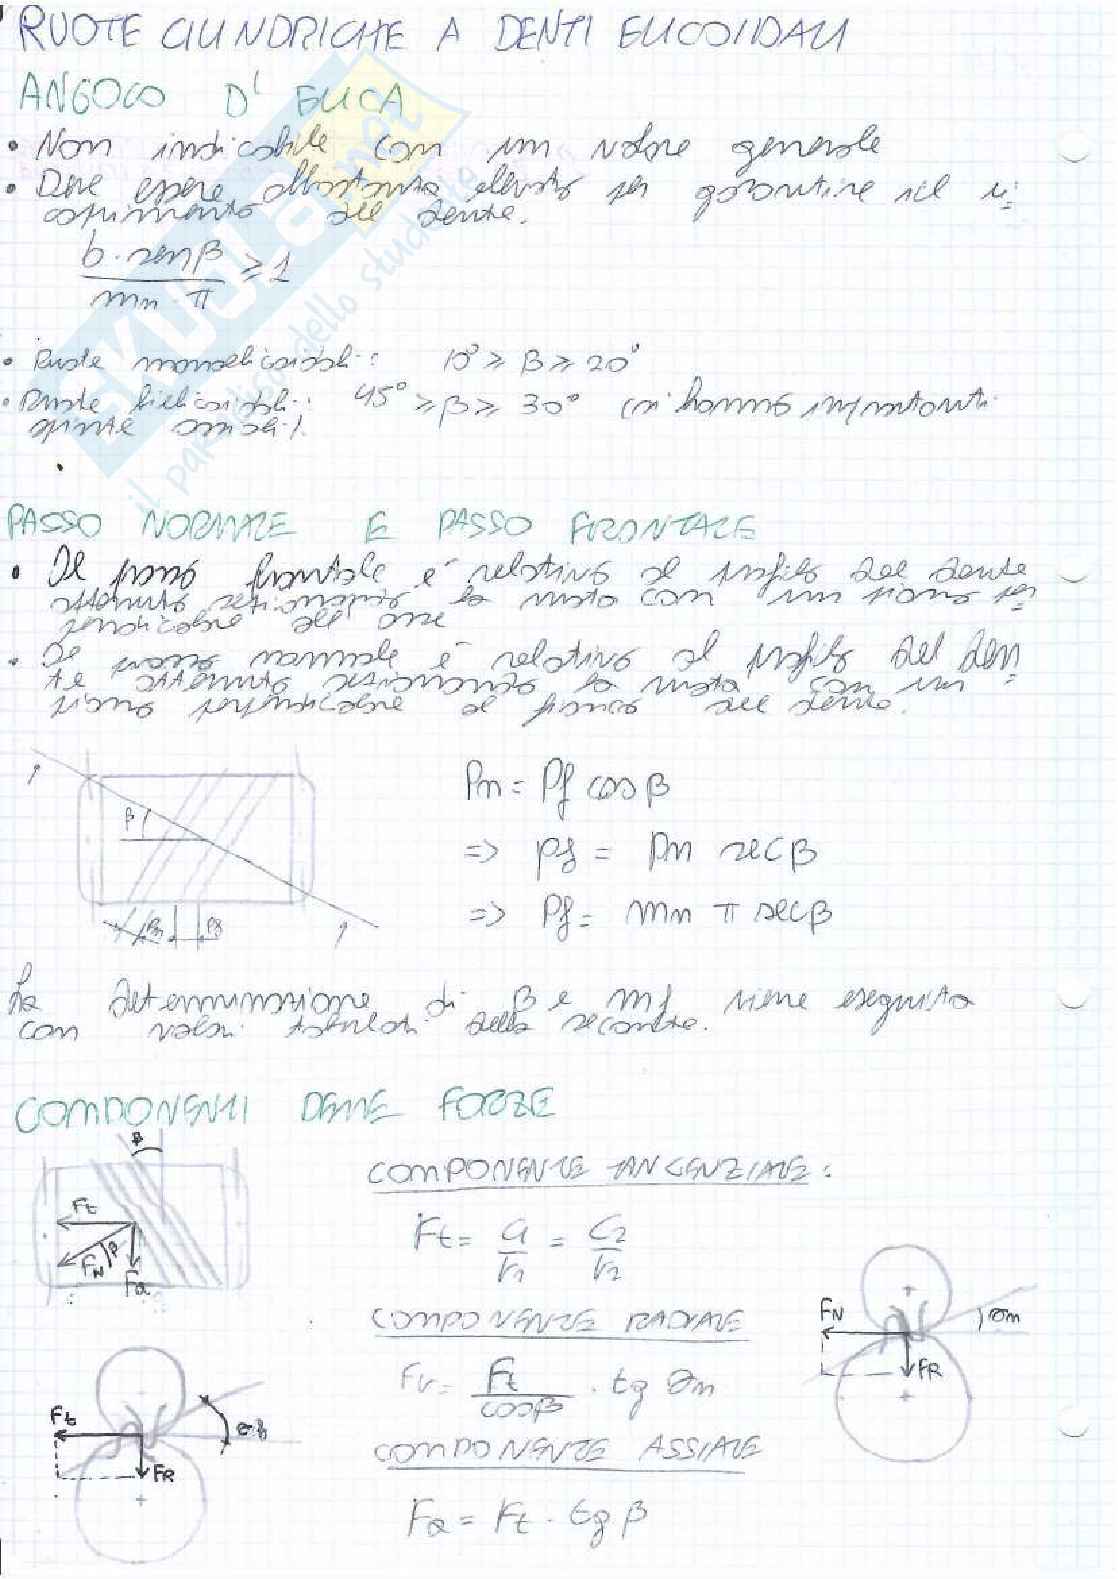 RUOTE CILINDRICHE A DENTI ELICOIDALI
ANGOLO D' ELICA
• Non indicabile con un valore generale
• Deve essere abbastanza elevato per garantire il ri=
coprimento del dente.
b · sen β / mn · π ≥ 1
• Ruote monoelicoidali: 10° ≥ β ≥ 20°
• Ruote bielicoidali: 45° ≥ β ≥ 30° (si hanno importanti
spinte assiali).
SKUOLA.net
il paradiso dello studente
PASSO NORMALE E PASSO FRONTALE
• Il passo frontale è relativo al profilo del dente
ottenuto sezionando la ruota con un piano per=
pendicolare all'asse
• Il passo normale è relativo al profilo del den=
te ottenuto sezionando la ruota con un
piano perpendicolare al fianco del dente.
β
Pn Pf
Pn = Pf cos β
=> Pf = Pn sec β
=> Pf = mn π sec β
La determinazione di β e mf viene eseguita
con valori tabulati della secante.
COMPONENTI DELLE FORZE
β
Ft
FN β
Fa
COMPONENTE TANGENZIALE:
Ft = C1 / r1 = C2 / r2
COMPONENTE RADIALE
Fr = Ft / cosβ · tg θn
COMPONENTE ASSIALE
Fa = Ft · tg β
Ft
FR
FN
θn
FR